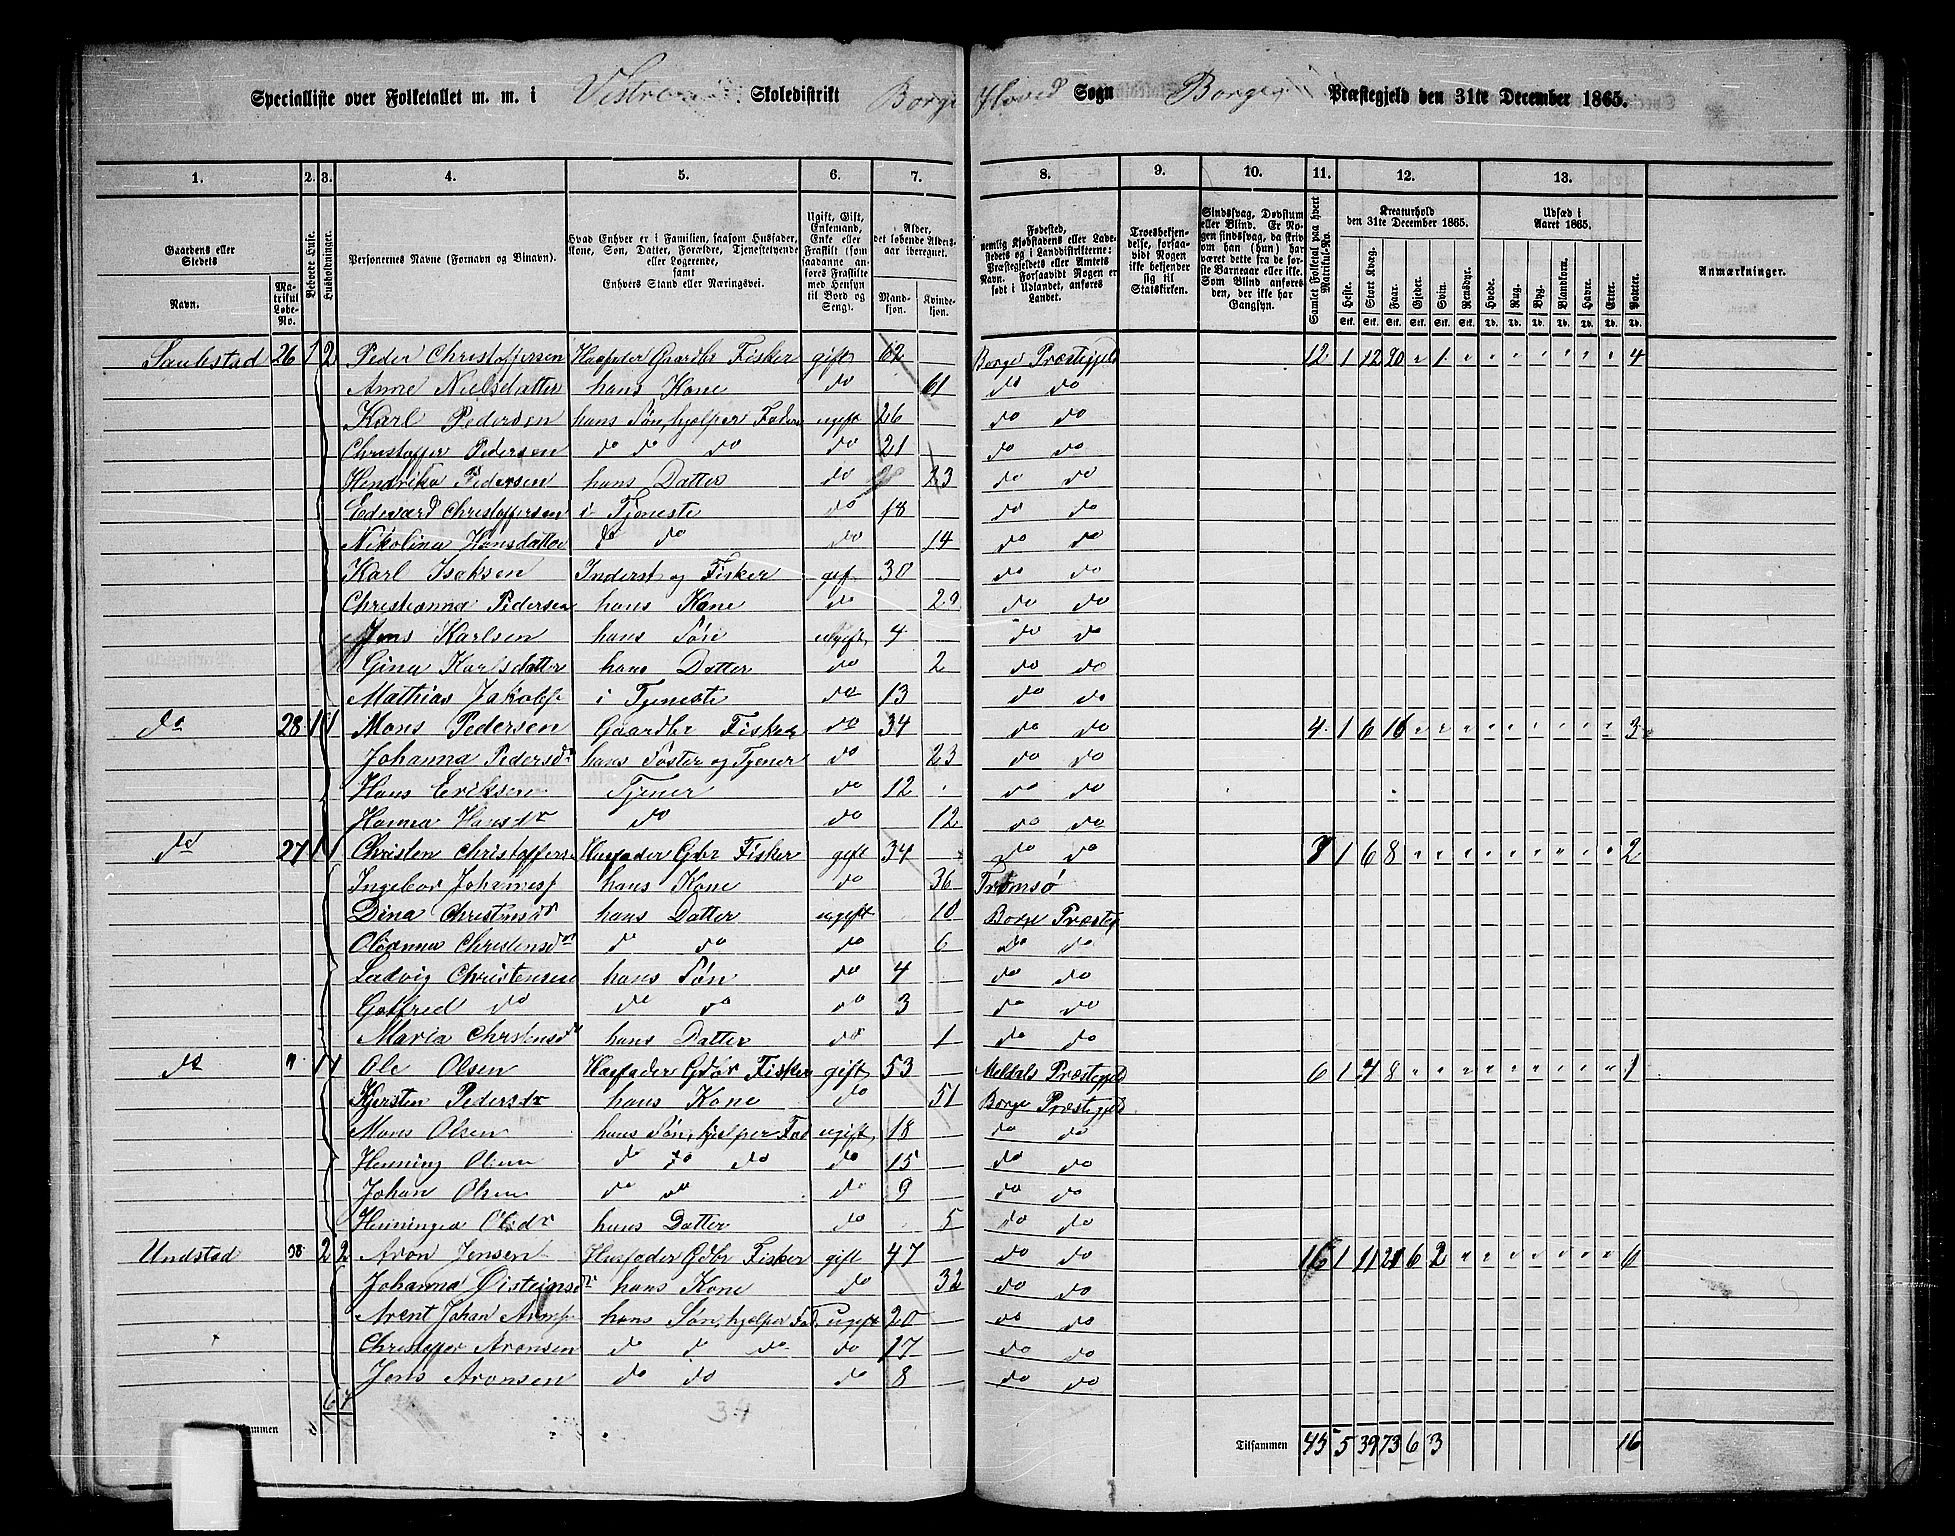 Specialliste over Folketallet m. m. i Vestre Skoledistrikt Borge Hoved Sogn Borge Præstegjeld den 31te December 1865.
1. 2. 3. 4. 5. 6. 7. 8. 9. 10. 11. 12. 13.
Gaardens eller Stedets Navn. Matrikul Løbe-No. Beboede Huse. Husholdninger. Personernes Navne (Fornavn og Binavn). Hvad Enhver er i Familien, saasom Husfader, Kone, Søn, Datter, Forældre, Tjenestetyende eller Logerende, samt Enhvers Stand eller Næringsvei. Ugift, Gift, Enkemand, Enke eller Fraskilt (som saadanne anføres Fraskilte med Hensyn til Bord og Seng). Alder, det løbende Aldersaar iberegnet. Mandkjøn. Kvindekjøn. Fødested, nemlig Kjøbstadens eller Ladestedets og i Landdistrikterne: Præstegjeldets eller Amtets Navn. Forsaavidt Nogen er født i Udlandet, anføres Landet. Troesbekjendelse, forsaavidt Nogen ikke bekjender sig til Statskirken. Sindssvag, Døvstum eller Blind. Er Nogen sindssvag, da skrives om han (hun) har været det fra de første Barneaar eller ikke. Som Blind anføres den, der ikke har Gangsyn. Samlet Folketal paa hvert Matrikul-No. Kreaturhold den 31te December 1865. Heste. Stort Kvæg. Faar. Gjeder. Svin. Rensdyr. Udsæd i Aaret 1865. Hvede. Rug. Byg. Blandkorn. Havre. Erter. Poteter. Anmærkninger.
Stk. Stk. Stk. Stk. Stk. Stk. Td. Td. Td. Td. Td. Td. Td.
26 1 2 Peder Christoffersen Husfader Gaardbr Fisker gift 62 Borge Præstegjeld 12 1 12 20 " 1 " " " " " " " 4
Anne Nielsdatter hans Kone do 61 do do
Karl Pedersen hans Søn, hjelper Faderen ugift 26 do do
Christoffer Pedersen do do do do 21 do do
Hendrika Pedersen hans Datter do 23 do do
Edevard Christoffersen i Tjeneste do 18 do do
Nikolina Hansdatter do do do 14 do do
Karl Isaksen Inderst og Fisker gift 30 do do
Christianna Pedersen hans Kone do 29 do do
Jens Karlsen hans Søn ugift 4 do do
Gina Karlsdatter hans Datter do 2 do do
Mathias Jakobs i Tjeneste do 13 do do
do 28 1 1 Mons Pedersen Gaardbr Fisker do 34 do do 4 1 6 16 " " " " " " " " " 3
Johanna Pedersdr hans Søster og Tjener do 23 do do
Hans Eriksen Tjener do 12 do do
Hanna Hansdr do do 12 do do
do 27 1 1 Christen Christoffersen Husfader Gdbr Fisker gift 34 do do 7 1 6 8 " " " " " " " " " 2
Ingebor Johannes hans Kone do 36 Tromsø
Dina Christensdr hans Datter ugift 10 Borge Præstegj
Oleanna Christensdr do do do 6 do do
Ludvig Christensen hans Søn do 4 do do
Gotfred do do do do 3 do do
Maria Christensdr hans Datter do 1 do do
do " 1 1 Ole Olsen Husfader Gdbr Fisker gift 53 Meldals Præstegjeld 6 1 4 8 " " " " " " " " " 1
Kjersten Pedersdr hans Kone do 51 Borge Præstegjeld
Mons Olsen hans Søn, hjelper Fad ugift 18 do do
Henning Olsen do do do do 15 do do
Johan Olsen do do do 9 do do
Henningea Olsdr hans Datter do 5 do do
Undstad 38 2 2 Aron Jensen Husfader Gdbr Fisker gift 47 do do 16 1 11 21 6 2 " " " " " " " 6
Johanna Øisteinsdr hans Kone do 32 do do
Arent Johan Arons hans Søn, hjelper Fad ugift 20 do do
Christoffer Aronsen do do do do 17 do do
Jens Aronsen do do do 8 do do
6 7
34
Tilsammen 45 5 39 73 6 3 16